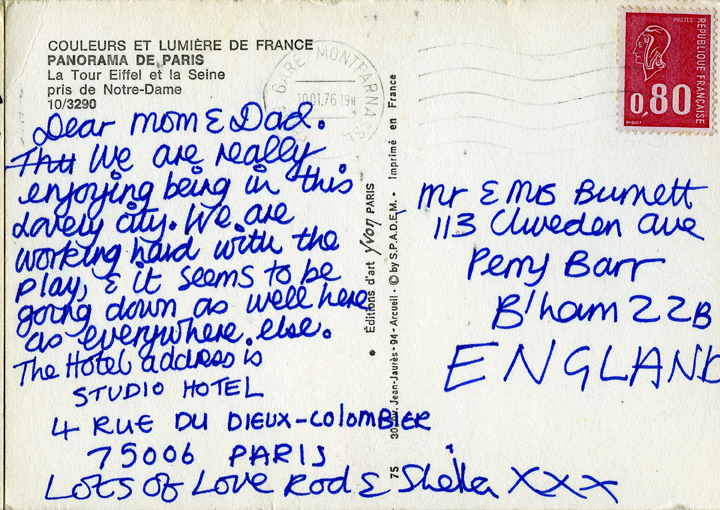 COULEURS ET LUMIÈRE DE FRANCE
PANORAMA DE PARIS
La Tour Eiffel et la Seine
pris de Notre-Dame
10/3290
Dear Mom & Dad.
We are really
enjoying being in this
lovely city. We are
working hard with the
play, & it seems to be
going down as well here
as everywhere else.
The Hotel address is
STUDIO HOTEL
4 RUE DU DIEUX-COLOMBIER
75006 PARIS
LOTS OF LOVE ROD & Sheila XXX
GARE MONTPARNA
10.01.76 19H
75 Jean-Jaurès - 94 - Arcueil • © by S.P.A.D.E.M. • Imprimé en France
• Éditions d'art yvon PARIS
POSTES
REPUBLIQUE FRANÇAISE
0,80
BEQUET
Mr & Mrs Burnett
113 Cliveden Ave
Perry Barr
B'ham 22B
ENGLAND